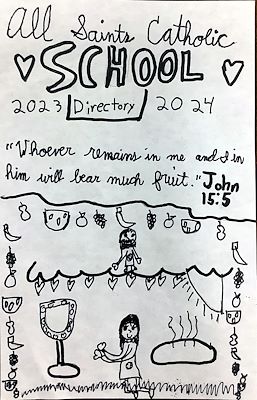 All Saints Catholic
SCHOOL
2023 Directory 2024
"Whoever remains in me and I in
him will bear much fruit." John
15:5